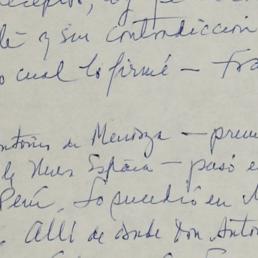 y sin contradicción
lo cual lo firmé — Fra
Antonio de Mendoza — prem
de Nueva España — pasó e
Perú. Lo sucedió en M
. Allí de donde Don Anton